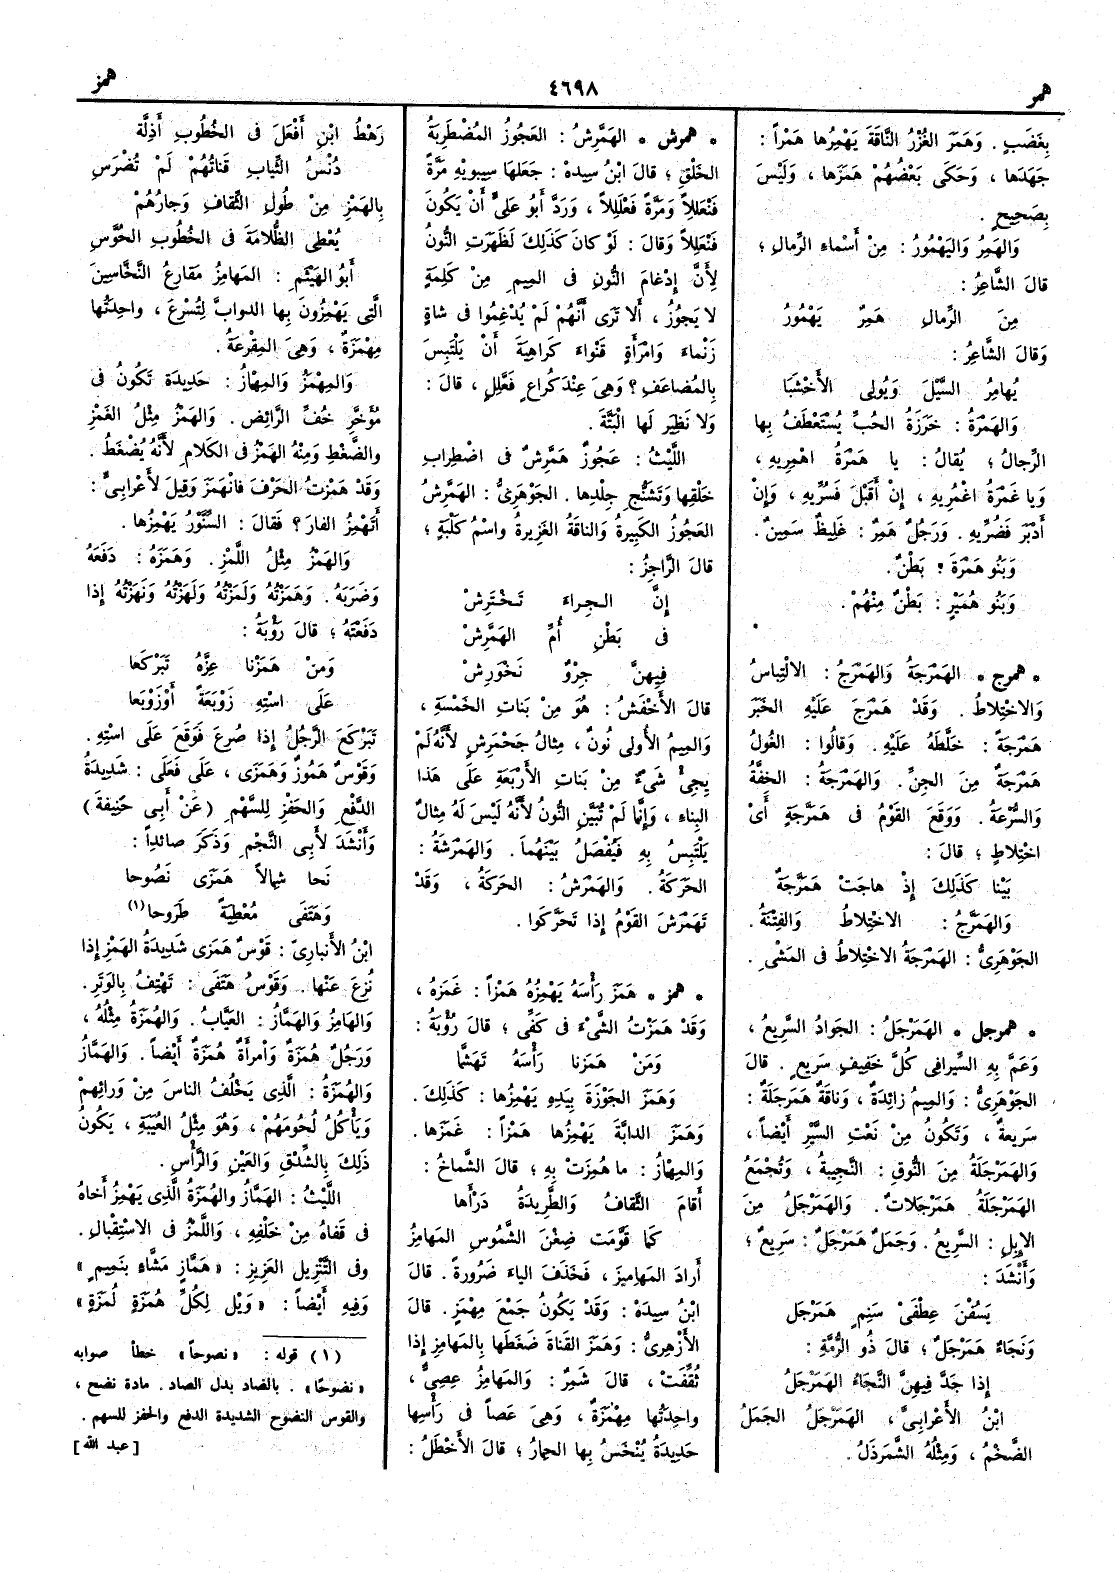 همر
٤٦٩٨
همز
بِغَضَبٍ . وَهَمَرَ الغُزْرُ النَّاقَةَ يَهْمِرُها هَمْراً :
جَهَدَها ، وَحَكَى بَعْضُهُمْ هَمَزَها ، وَلَيْسَ
بِصَحِيحٍ .
وَالهَمِرُ وَاليَهْمُورُ : مِنْ أَسْماءِ الرِّمالِ ؛
قالَ الشَّاعِرُ :
مِنَ الرِّمالِ هَمِرٌ يَهْمُورُ
وَقالَ الشَّاعِرُ :
يُهامِرُ السَّيْلَ وَيُولى الأَخْشَبَا
وَالهَمْرَةُ : خَرَزَةُ الحُبِّ يُسْتَعْطَفُ بِها
الرِّجالُ ؛ يُقالُ : يا هَمْرَةُ اهْمِرِيهِ ،
وَيا غَمْرَةُ اغْمُرِيهِ ، إِنْ أَقْبَلَ فَسُرِّيهِ ، وَإِنْ
أَدْبَرَ فَضُرِّيهِ . وَرَجُلٌ هَمِرٌ : غَلِيظٌ سَمِينٌ .
وَبَنُو هَمْرَةَ : بَطْنٌ .
وَبَنُو هُمَيْرٍ : بَطْنٌ مِنْهُمْ .
* همرج * الهَمْرَجَةُ وَالهَمْرَجُ : الالْتِباسُ
وَالاخْتِلاطُ . وَقَدْ هَمْرَجَ عَلَيْهِ الخَبَرَ
هَمْرَجَةً : خَلَّطَهُ عَلَيْهِ . وَقالُوا : الغُولُ
هَمْرَجَةٌ مِنَ الجِنِّ . وَالهَمْرَجَةُ : الخِفَّةُ
وَالسُّرْعَةُ . وَوَقَعَ القَوْمُ فى هَمْرَجَةٍ أَىْ
اخْتِلاطٍ ؛ قالَ :
بَيْنا كَذَلِكَ إِذْ هاجَتْ هَمْرَجَةٌ
وَالهَمَرَّجُ : الاخْتِلاطُ وَالفِتْنَةُ .
الجَوْهَرِىُّ : الهَمْرَجَةُ الاخْتِلاطُ فى المَشْىِ .
* همرجل * الهَمَرْجَلُ : الجَوادُ السَّرِيعُ ،
وَعَمَّ بِهِ السِّيرافى كُلَّ خَفِيفٍ سَرِيعٍ . قالَ
الجَوْهَرِىُّ : وَالمِيمُ زائِدَةٌ ، وَناقَةٌ هَمَرْجَلَةٌ :
سَرِيعَةٌ ، وَتَكُونُ مِنْ نَعْتِ السَّيْرِ أَيْضاً ،
وَالهَمَرْجَلَةُ مِنَ النُّوقِ : النَّجِيبَةُ ، وَتُجْمَعُ
الهَمَرْجَلَةُ هَمَرْجَلاتٌ . وَالهَمَرْجَلُ مِنَ
الإِبِلِ : السَّرِيعُ . وَجَمَلٌ هَمَرْجَلٌ : سَرِيعٌ ؛
وَأَنْشَدَ :
يَسُفْنَ عِطْفَىْ سَنِمٍ هَمَرْجَلِ
وَنَجاءٌ هَمَرْجَلٌ ؛ قالَ ذُو الرُّمَّةِ :
إِذا جَدَّ فِيهِنَّ النَّجَاءُ الهَمَرْجَلُ
ابْنُ الأَعْرابِىِّ ، الهَمَرْجَلُ الجَمَلُ
الضَّخْمُ ، وَمِثْلُهُ الشَّمَرْدَلُ .
* همرش * الهَمَّرِشُ : العَجُوزُ المُضْطَرِبَةُ
الخَلْقِ ؛ قالَ ابْنُ سِيدَهْ : جَعَلَها سِيبويْهِ مَرَّةً
فَنْعَلِلاً وَمَرَّةً فَعْلَلِلاً ، وَرَدَّ أَبُو عَلِىٍّ أَنْ يَكُونَ
فَنْعَلِلاً وَقالَ : لَوْ كانَ كَذَلِكَ لَظَهَرَتِ النُّونُ
لِأَنَّ إِدْغامَ النُّونِ فى المِيمِ مِنْ كَلِمَةٍ
لا يَجُوزُ ، أَلا تَرَى أَنَّهُمْ لَمْ يُدْغِمُوا فى شاةٍ
زَنْماءَ وَامْرَأَةٍ قَنْواءَ كَراهِيَةَ أَنْ يَلْتَبِسَ
بِالمُضاعَفِ ؟ وَهِىَ عِنْدَ كُراعٍ فَعَّلِلٍ ، قالَ :
وَلا نَظِيرَ لَها الْبَتَّةَ .
اللَّيْثُ : عَجُوزٌ هَمَّرِشٌ فى اضْطِرابِ
خَلْقِها وَتَشَنُّجِ جِلْدِها . الجَوْهَرِىُّ : الهَمَّرِشُ
العَجُوزُ الكَبِيرةُ وَالناقَةُ الغَزِيرةُ وَاسْمُ كَلْبَةٍ ؛
قالَ الرَّاجِزُ :
إِنَّ الجِراءَ تَخْتَرِشْ
فى بَطْنِ أُمِّ الهَمَّرِشْ
فِيهِنَّ جِرْوٌ نَخْوَرِشْ
قالَ الأَخْفَشُ : هُوَ مِنْ بَناتِ الخَمْسَةِ ،
وَالمِيمُ الأُولى نُونٌ ، مِثالُ جَحْمَرِشٍ لأَنَّهُ لَمْ
يَجِئْ شَىْءٌ مِنْ بَناتِ الأَرْبَعَةِ عَلَى هَذا
البِناءِ ، وَإِنَّما لَمْ تُبَيَّنِ النُّونُ لأَنَّهُ لَيْسَ لَهُ مِثالٌ
يَلْتَبِسُ بِهِ فَيُفْصَلُ بَيْنَهُما . وَالهَمْرَشَةُ :
الحَرَكَةُ . وَالهَمْرَشُ : الحَرَكَةُ ، وَقَدْ
تَهَمْرَشَ القَوْمُ إِذا تَحَرَّكُوا .
* همز * هَمَزَ رَأْسَهُ يَهْمِزُهُ هَمْزاً : غَمَزَهُ ،
وَقَدْ هَمَزْتُ الشَّىْءَ فى كَفِّى ؛ قالَ رُؤْبَةُ :
وَمَنْ هَمَزْنا رَأْسَهُ تَهَشَّما
وَهَمَزَ الجَوْزَةَ بِيَدِهِ يَهْمِزُها : كَذَلِكَ .
وَهَمَزَ الدابَّةَ يَهْمِزُها هَمْزاً : غَمَزَها .
وَالمِهْمازُ : ما هُمِزَتْ بِهِ ؛ قالَ الشَّماخُ :
أَقامَ الثِّقافُ وَالطَّرِيدَةُ دَرْأَها
كَما قَوَّمَتْ ضِغْنَ الشَّمُوسِ المَهامِزُ
أَرادَ المَهامِيزَ ، فَحَذَفَ الياءَ ضَرُورةً . قالَ
ابْنُ سِيدَهْ : وَقَدْ يَكُونُ جَمْعَ مِهْمَزٍ . قالَ
الأَزْهَرِىُّ : وَهَمَزَ القَناةَ ضَغَطَها بِالمَهامِزِ إِذا
ثُقِّفَتْ ، قالَ شَمِرٌ : وَالمَهامِزُ عِصِىٌّ ،
واحِدَتُها مِهْمَزَةٌ ، وَهِىَ عَصاً فى رَأْسِها
حَدِيدَةٌ يُنْخَسُ بِها الحِمارُ ؛ قالَ الأَخْطَلُ :
رَهْطُ ابْنِ أَفْعَلَ فى الخُطُوبِ أَذِلَّة
دُنُسُ الثِّيابِ قَناتُهُمْ لَمْ تُضْرَسِ
بِالهَمْزِ مِنْ طُولِ الثِّقافِ وَجارُهُمْ
يُعْطِى الظُّلامَةَ فى الخُطُوبِ الحُوَّسِ
أَبُو الهَيْثَمِ : المَهامِزُ مَقارِعُ النَّخَّاسِينَ
الَّتِى يَهْمِزُونَ بِها الدوابَّ لِتُسْرِعَ ، واحِدَتُها
مِهْمَزَةٌ ، وَهِىَ المِقْرَعَةُ .
وَالمِهْمَزُ وَالمِهْمازُ : حَدِيدَة تَكُونُ فى
مُؤَخَّرِ خُفِّ الرَّائِضِ . وَالهَمْزُ مِثْلُ الغَمْزِ
والضَّغْطِ وَمِنْهُ الهَمْزُ فى الكَلامِ لأَنَّهُ يُضْغَطُ .
وَقَدْ هَمَزْتُ الحَرْفَ فانْهَمَزَ وَقِيلَ لأَعْرابِىٍّ :
أَتَهْمِزُ الفارَ ؟ فَقالَ : السِّنَّوْرُ يَهْمِزُها .
وَالهَمْزُ مِثْلُ اللَّمْزِ . وَهَمَزَهُ : دَفَعَهُ
وَضَرَبَهُ . وَهَمَزْتُهُ وَلَمَزْتُهُ وَلَهَزْتُهُ وَنَهَزْتُهُ إِذا
دَفَعْتَهُ ؛ قالَ رُؤْبَةُ :
وَمَنْ هَمَزْنا عِزَّهُ تَبَرْكَعا
عَلَى اسْتِهِ زَوْبَعَةً أَوْ زَوْبَعا
تَبَرْكَعَ الرَّجُلُ إِذا صُرِعَ فَوَقَعَ عَلَى اسْتِهِ .
وَقَوْسٌ هَمُوزٌ وَهَمَزَى ، عَلَى فَعَلَى : شَدِيدَةُ
الدَّفْعِ وَالحَفْزِ لِلسَّهْمِ (عَنْ أَبِى حَنِيفَةَ)
وَأَنْشَدَ لأَبِى النَّجْمِ وَذَكَرَ صائِداً :
نَحا شِمالاً هَمَزَى نَصُوحا
وَهَتَفَى مُعْطِيَةً طَرُوحا(١)
ابْنُ الأَنبارِىّ : قَوْسٌ هَمَزَى شَدِيدَةُ الهَمْزِ إِذا
نُزِعَ عَنْها . وَقَوْسُ هَتَفَى : تَهْتِفُ بِالوَتَرِ .
وَالهامِزُ وَالهَمَّازُ : العَيَّابُ . وَالهُمَزَةُ مِثْلُهُ ،
وَرَجُلٌ هُمَزَةٌ وَامرأَةٌ هُمَزَةٌ أَيْضاً . وَالهَمَّازُ
وَالهُمَزَةُ : الَّذِى يَخْلُفُ الناسَ مِنْ وَرائِهِمْ
وَيَأْكُلُ لُحُومَهُمْ ، وَهُوَ مِثْلُ العُيَبَةِ ، يَكُونُ
ذَلِكَ بِالشِّدْقِ وَالعَيْنِ وَالرَّأْسِ .
اللَّيْثُ : الهَمَّازُ والهُمَزَةُ الَّذِى يَهْمِزُ أَخاهُ
فى قَفاهُ مِنْ خَلْفِهِ ، وَاللَّمْزُ فى الاسْتِقْبالِ .
وفى التَّنْزِيلِ العَزِيزِ : « هَمَّازٍ مَشَّاءٍ بِنَمِيمٍ »
وَفِيهِ أَيْضاً : « وَيْل لِكُلِّ هُمَزَةٍ لُمَزَةٍ »
(١) قوله : « نصوحاً » خطأ صوابه
« نضوحًا » . بالضاد بدل الصاد . مادة نضح ،
والقوس النضوح الشديدة الدفع والحفز للسهم .
[عبد الله]